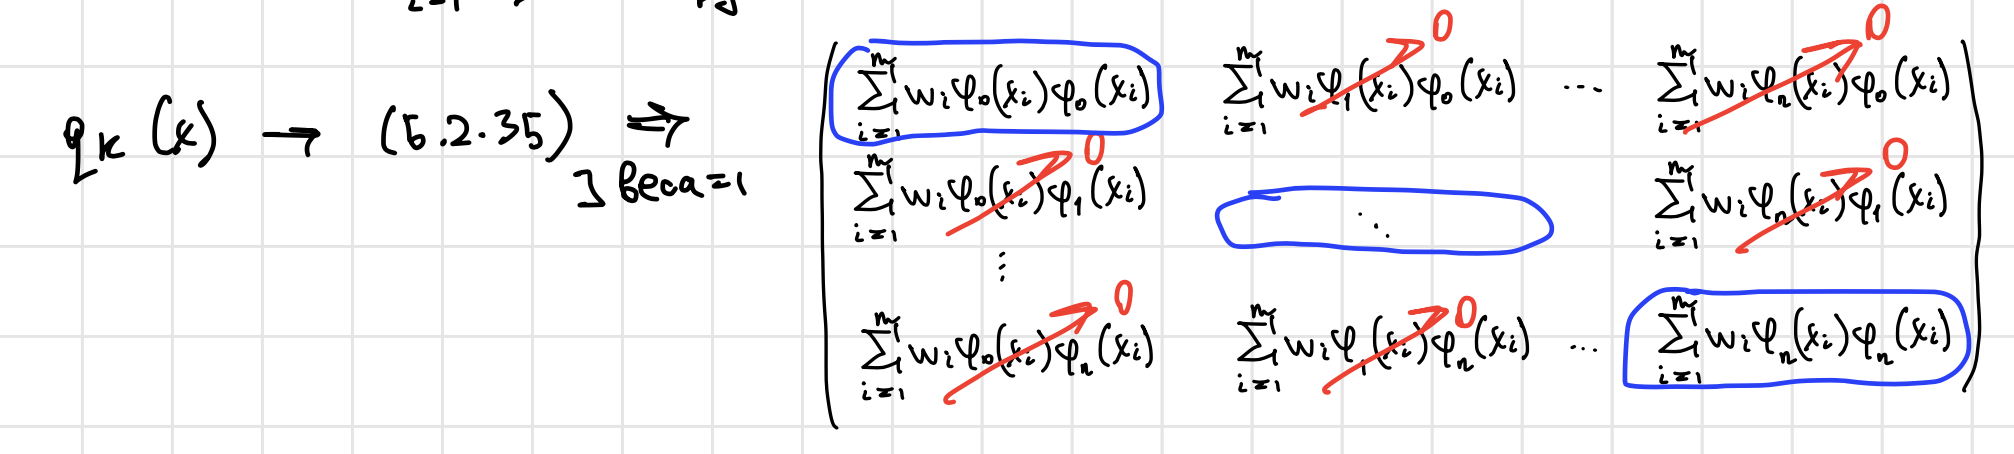 q_k (x) → (5.2.35) ⇒
∃ веса=1
∑_{i=1}^{m} w_i φ_0(x_i) φ_0(x_i) ∑_{i=1}^{m} w_i φ_1(x_i) φ_0(x_i) 0 ... ∑_{i=1}^{m} w_i φ_n(x_i) φ_0(x_i) 0
∑_{i=1}^{m} w_i φ_0(x_i) φ_1(x_i) 0 ⋱ ∑_{i=1}^{m} w_i φ_n(x_i) φ_1(x_i) 0
⋮
∑_{i=1}^{m} w_i φ_0(x_i) φ_n(x_i) 0 ∑_{i=1}^{m} w_i φ_1(x_i) φ_n(x_i) 0 ... ∑_{i=1}^{m} w_i φ_n(x_i) φ_n(x_i)